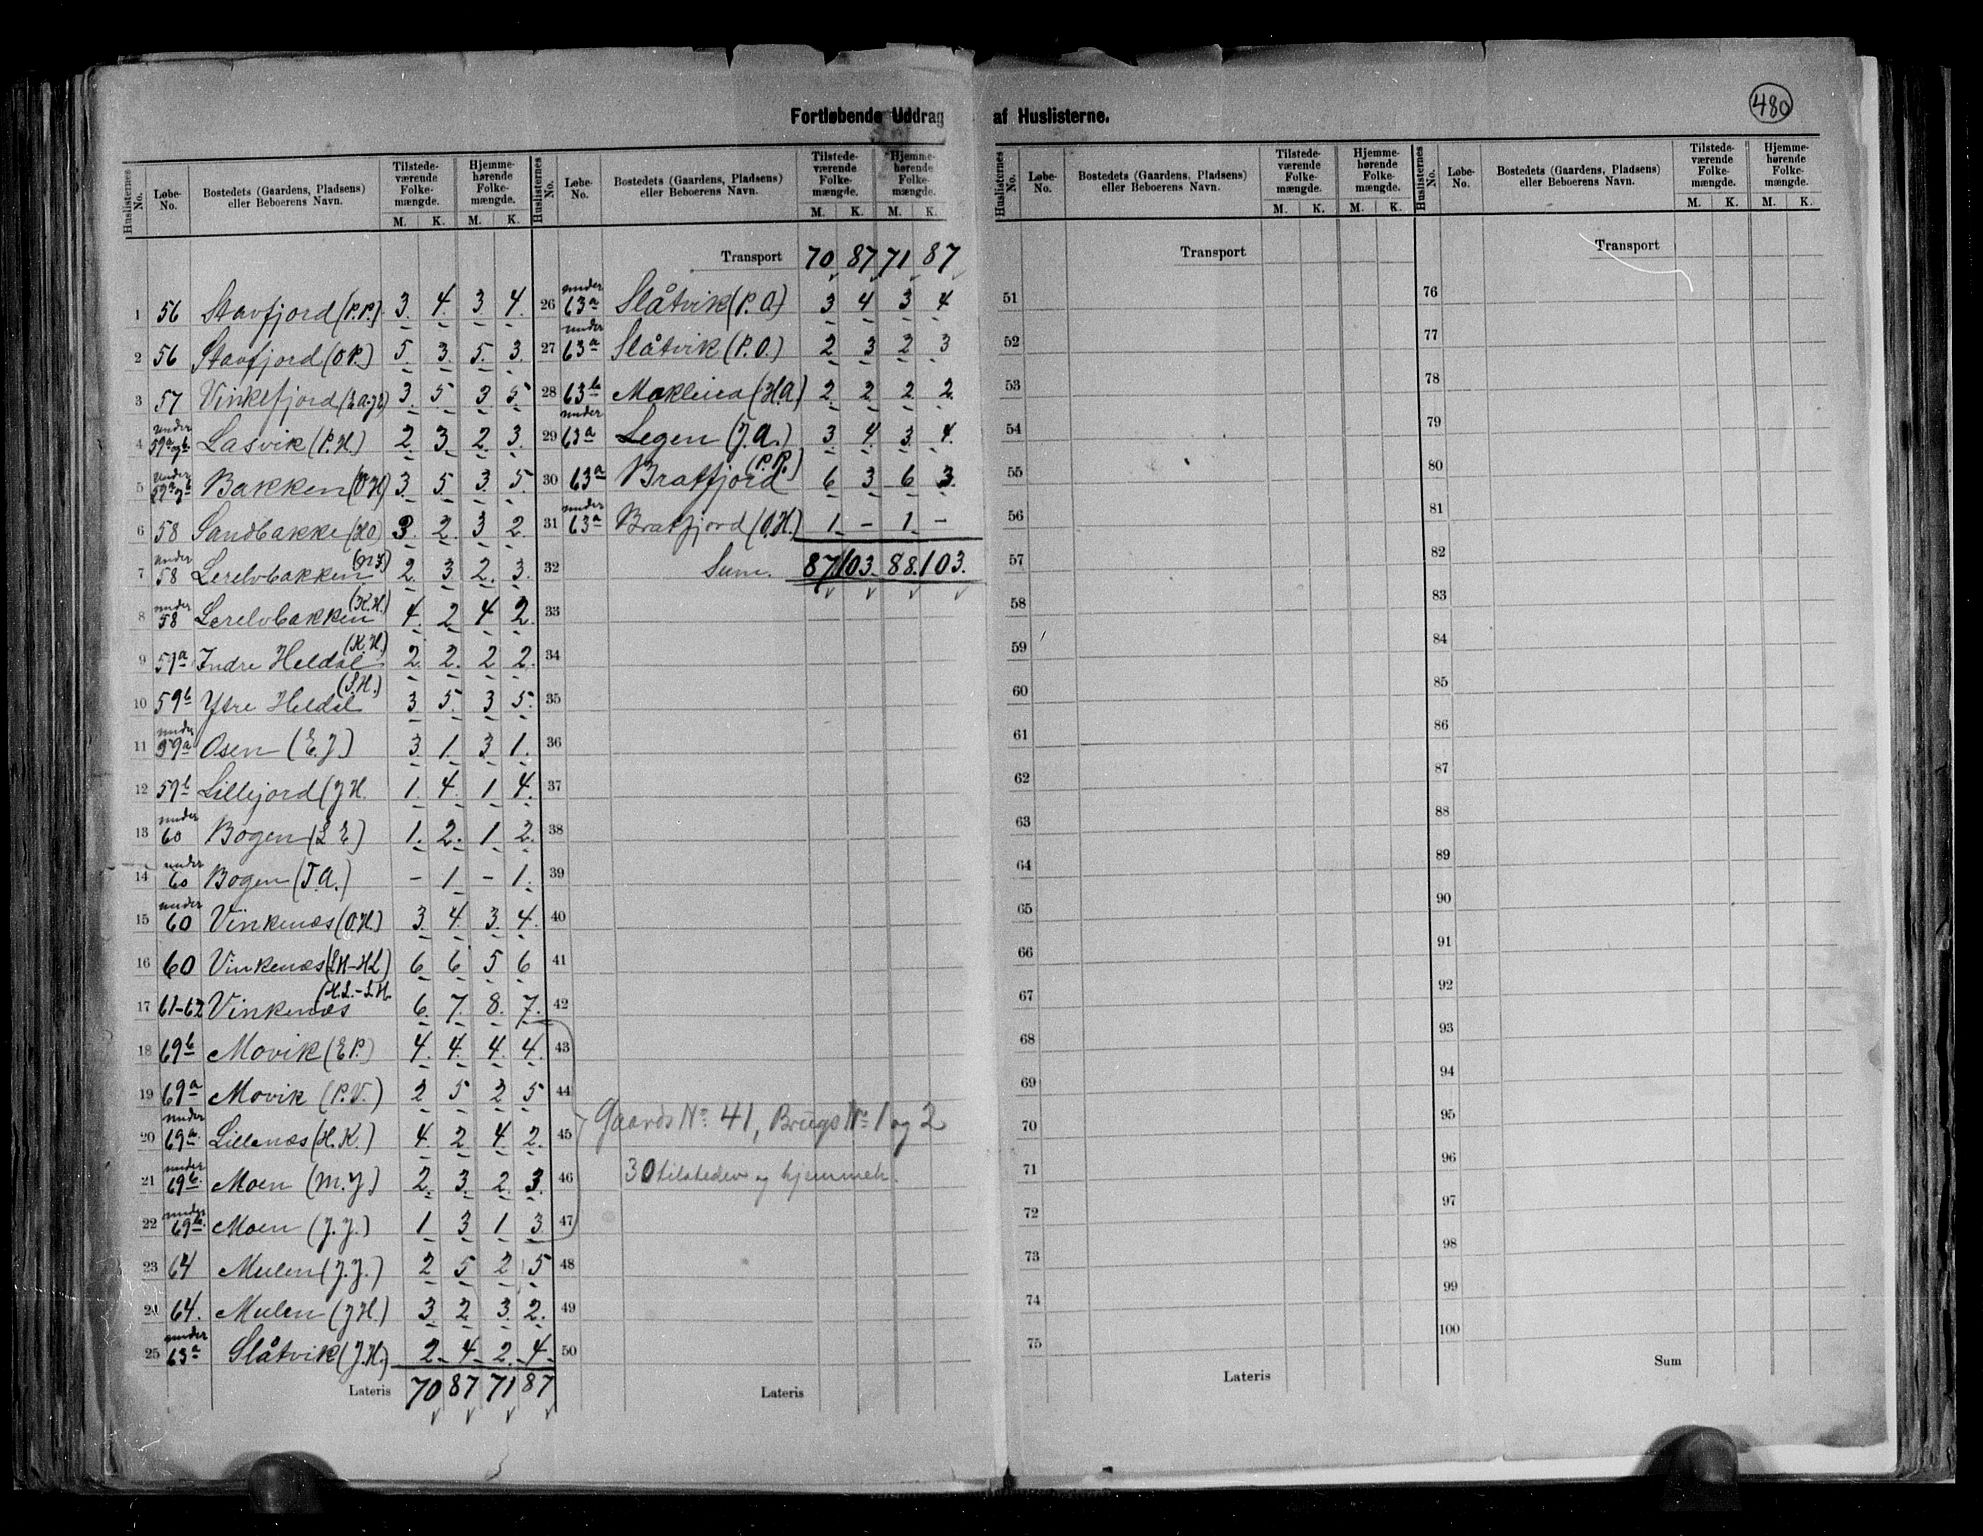 Fortløbende Uddrag af Huslisterne.
480
Huslisternes No. | Løbe-No. | Bostedets (Gaardens, Pladsens) eller Beboerens Navn. | Tilstedeværende Folkemængde. M. K. | Hjemmehørende Folkemængde. M. K.
1 56 Stavfjord (P.P.) 3. 4. 3. 4.
2 56 Stavfjord (O P.) 5. 3. 5. 3.
3 57 Vinkefjord 3. 5 3. 5
4 under 59a og b Lasvik (P.H.) 2. 3. 2. 3.
5 under 59a og b Bakken (O H) 3. 5. 3. 5.
6 58 Sandbakke (H O) 3. 2. 3 2.
7 under 58 Lerelvbakken 2. 3 2. 3.
8 under 58 Lerelvbakken (K.H.) 4. 2 4 2.
9 59a Indre Heldal (K.H.) 2. 2. 2 2.
10 59b Ytre Heldal (S.H.) 3 5. 3 5.
11 under 59a Osen (E.J.) 3 1. 3 1.
12 59b Lillejord (J H. 1. 4. 1 4.
13 under 60 Bogen (L E) 1. 2. 1 2.
14 under 60 Bogen (T.A.) - 1 - 1.
15 under 60 Vinkenæs (O.H.) 3. 4. 3. 4.
16 60 Vinkenæs (L H-H L) 6 6 5 6
17 61-62 Vinkenæs (H.L.-L.H. 6. 7. 8. 7.
18 69b Movik (E P.) 4. 4. 4. 4.
19 69a Movik (P.V.) 2 5 2 5
20 under 69a Lillenæs (H.K.) 4. 2 4. 2.
21 under 69b. Moen (M.J.) 2. 3. 2. 3.
22 under 69b Moen (J.J.) 1 3 1 3
23 64 Mulen (J.J.) 2 5 2 5
24 64. Mulen (J H.) 3 2 3. 2.
25 under 63a Slåtvik (J.H.) 2. 4. 2. 4.
Lateris 70 87 71 87
Huslisternes No. | Løbe-No. | Bostedets (Gaardens, Pladsens) eller Beboerens Navn. | Tilstedeværende Folkemængde. M. K. | Hjemmehørende Folkemængde. M. K.
Transport 70 87 71 87
26 under 63a Slåtvik (P. O) 3 4 3 4
27 under 63a Slåtvik (P.O.) 2 3 2 3
28 63b (H.A.) 2. 2 2 2.
29 under 63a Legen (J.A.) 3. 4. 3. 4.
30 63a Bratfjord (P.P.) 6 3 6 3.
31 under 63a Bratfjord (O.H.) 1. - 1. -
32 Sum. 87 103. 88. 103.
33
34
35
36
37
38
39
40
41
42
43
44
45 Gaards No 41, Brugs No 1 og 2
46 30 tilstedev og hjemmeh.
47
48
49
50
Lateris
Huslisternes No. | Løbe-No. | Bostedets (Gaardens, Pladsens) eller Beboerens Navn. | Tilstedeværende Folkemængde. M. K. | Hjemmehørende Folkemængde. M. K.
Transport
51
52
53
54
55
56
57
58
59
60
61
62
63
64
65
66
67
68
69
70
71
72
73
74
75
Lateris
Huslisternes No. | Løbe-No. | Bostedets (Gaardens, Pladsens) eller Beboerens Navn. | Tilstedeværende Folkemængde. M. K. | Hjemmehørende Folkemængde. M. K.
Transport
76
77
78
79
80
81
82
83
84
85
86
87
88
89
90
91
92
93
94
95
96
97
98
99
100
Sum